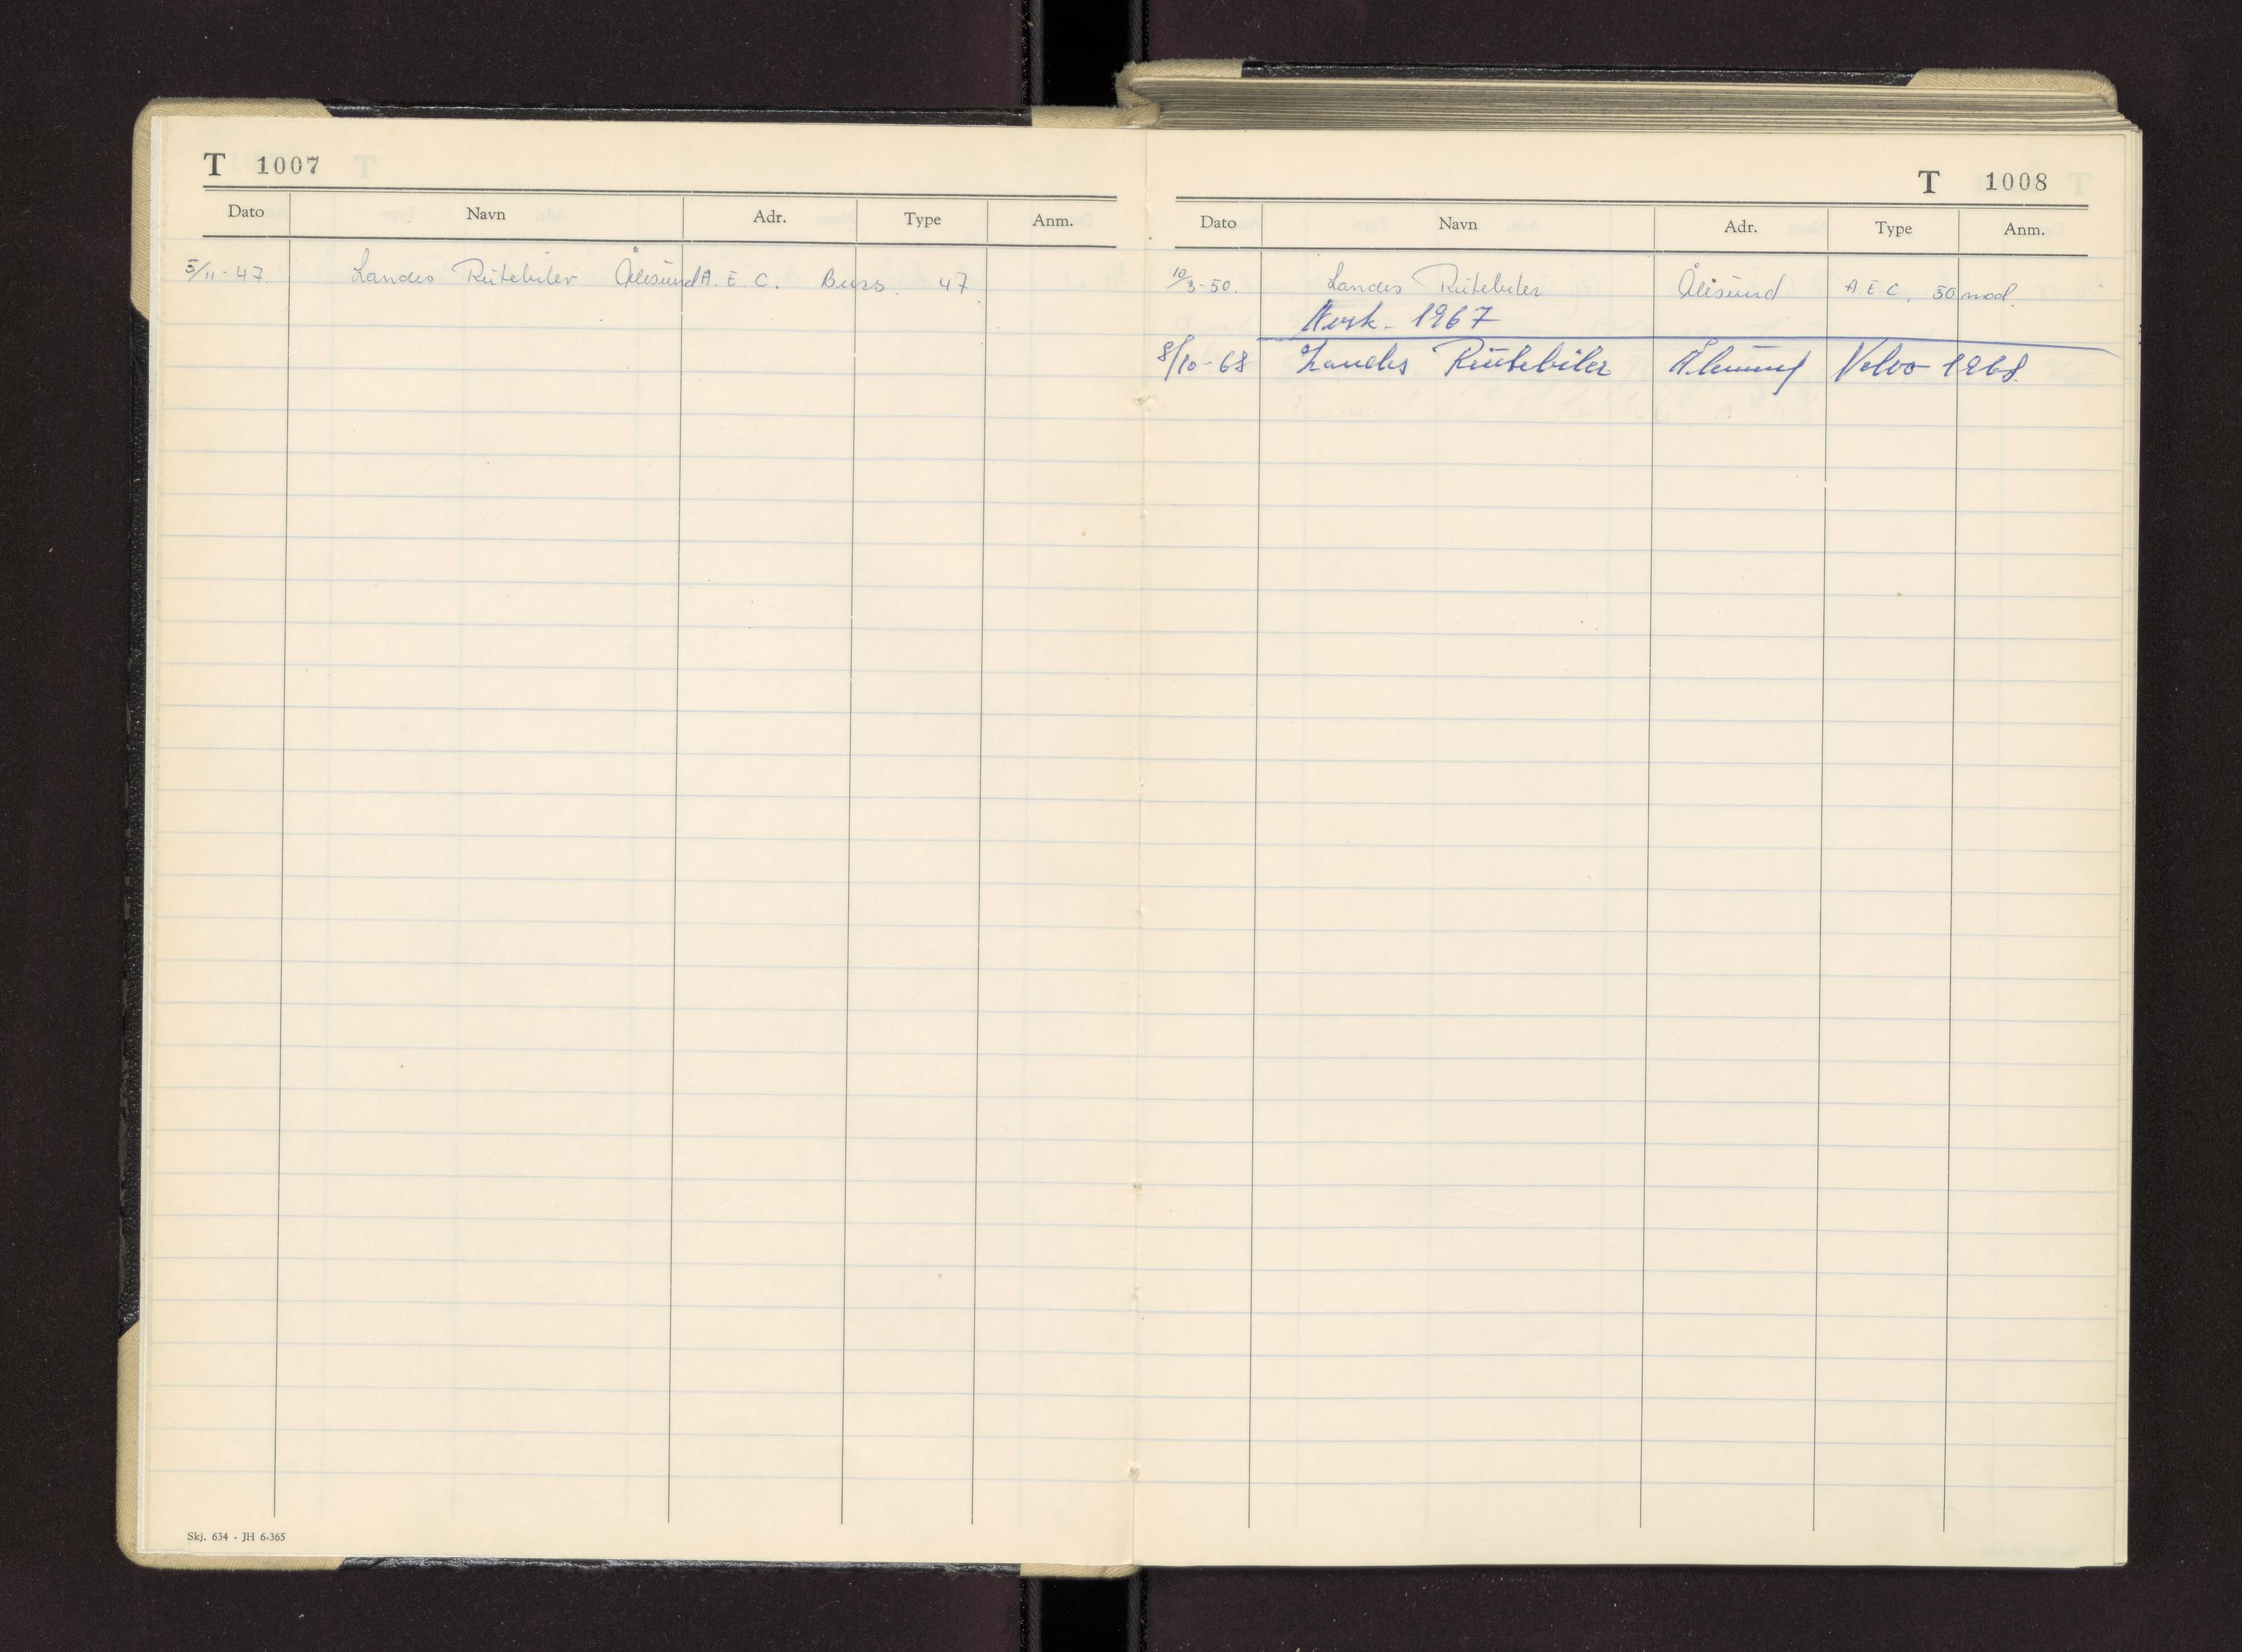 T 1007
Dato Navn Adr. Type Anm.
5/11-47. Landes Rutebiler Ålesund A. E. C. Buss. 47.
Skj. 634 - JH 6-365
T 1008
Dato Navn Adr. Type Anm.
10/3-50. Landes Rutebiler Ålesund A E C, 50 mod.
1967
8/10-68 Landes Rutebiler Ålesund Volvo 1968.